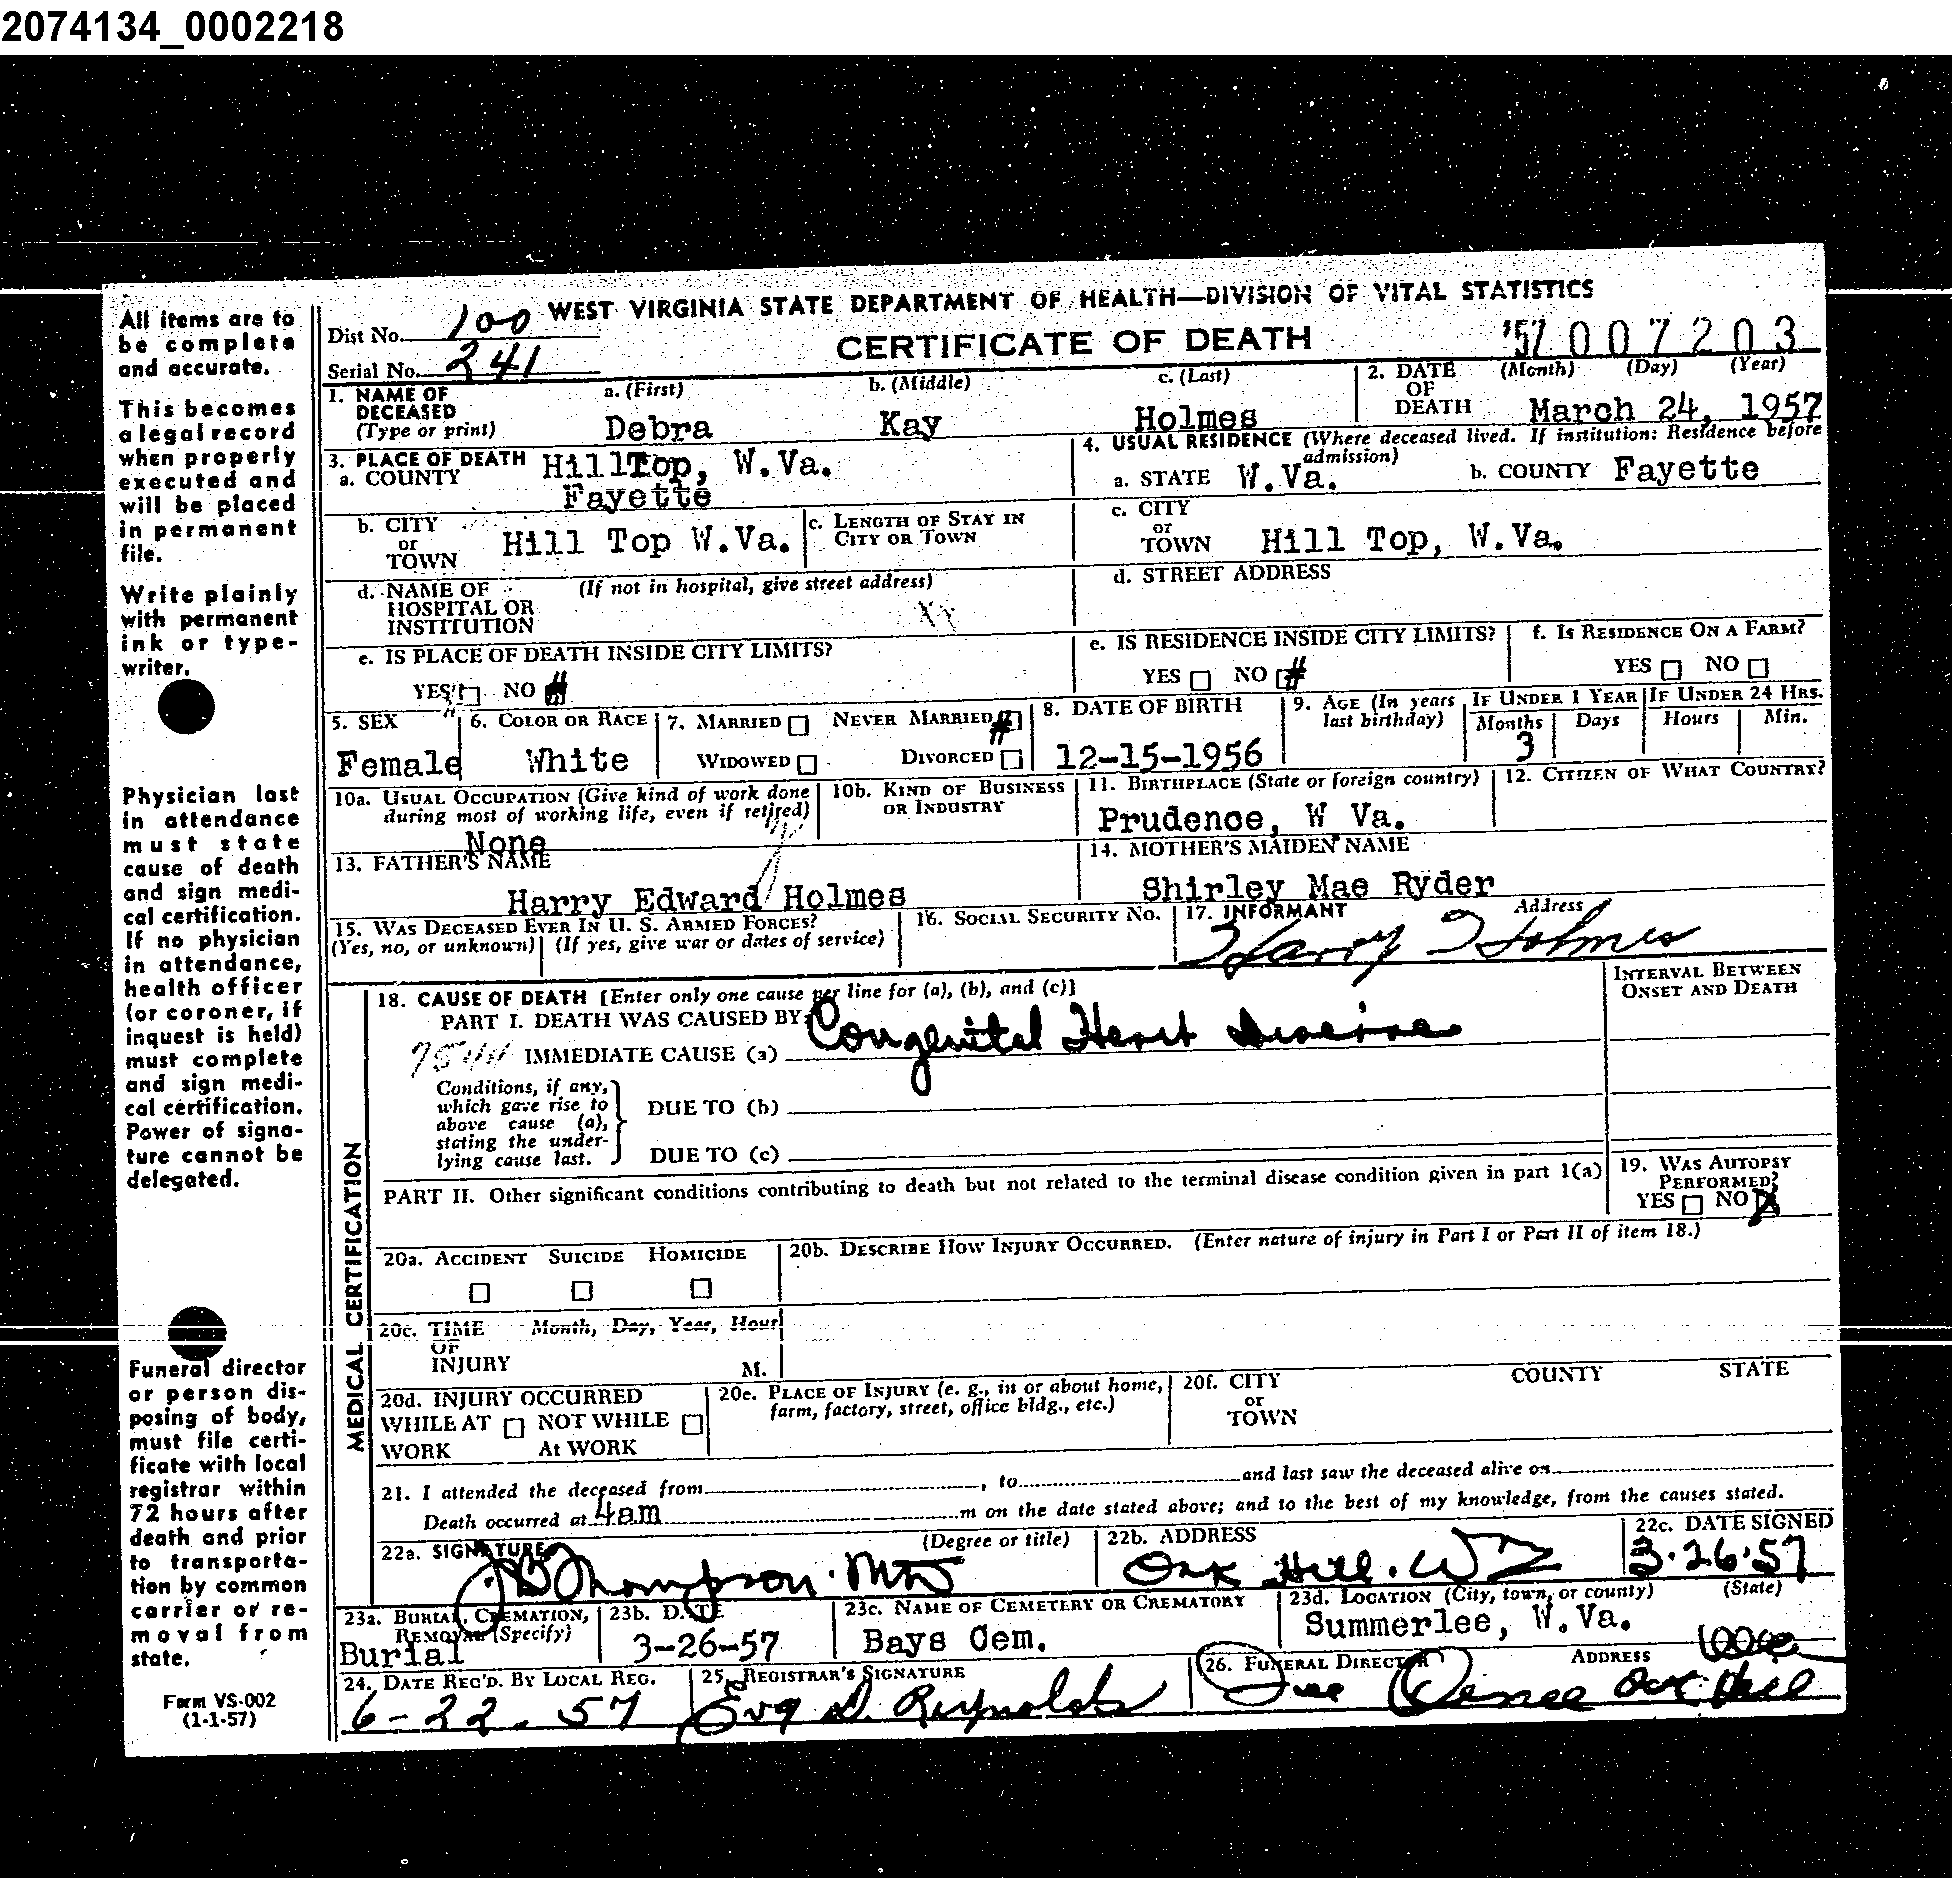 2074134_0002218
All items are to
be complete
and accurate.
This becomes
a legal record
when properly
executed and
will be placed
in permanent
file.
Write plainly
with permanent
ink or type-
writer.
Physician last
in attendance
must state
cause of death
and sign medi-
cal certification.
If no physician
in attendance,
health officer
(or coroner, if
inquest is held)
must complete
and sign medi-
cal certification.
Power of signa-
ture cannot be
delegated.
Funeral director
or person dis-
posing of body,
must file certi-
ficate with local
registrar within
72 hours after
death and prior
to transporta-
tion by common
carrier or re-
moval from
state.
Form VS-002
(1-1-57)
WEST VIRGINIA STATE DEPARTMENT OF HEALTH—DIVISION OF VITAL STATISTICS
Dist No. 100
CERTIFICATE OF DEATH
'57 007203
Serial No. 241
1. NAME OF DECEASED (Type or print)
a. (First) b. (Middle) c. (Last)
Debra Kay Holmes
2. DATE OF DEATH (Month) (Day) (Year)
March 24, 1957
3. PLACE OF DEATH HillTop, W.Va.
a. COUNTY Fayette
4. USUAL RESIDENCE (Where deceased lived. If institution: Residence before admission)
a. STATE W.Va. b. COUNTY Fayette
b. CITY or TOWN Hill Top W.Va.
c. LENGTH OF STAY IN CITY OR TOWN
c. CITY or TOWN Hill Top, W.Va.
d. NAME OF HOSPITAL OR INSTITUTION (If not in hospital, give street address)
d. STREET ADDRESS
e. IS PLACE OF DEATH INSIDE CITY LIMITS?
YES NO #
e. IS RESIDENCE INSIDE CITY LIMITS?
YES NO #
f. IS RESIDENCE ON A FARM?
YES NO
5. SEX Female
6. COLOR OR RACE White
7. MARRIED NEVER MARRIED #
WIDOWED DIVORCED
8. DATE OF BIRTH 12-15-1956
9. AGE (In years last birthday)
IF UNDER 1 YEAR IF UNDER 24 HRS.
Months Days Hours Min.
3
10a. USUAL OCCUPATION (Give kind of work done during most of working life, even if retired)
None
10b. KIND OF BUSINESS OR INDUSTRY
11. BIRTHPLACE (State or foreign country)
Prudence, W Va.
12. CITIZEN OF WHAT COUNTRY?
13. FATHER'S NAME
Harry Edward Holmes
14. MOTHER'S MAIDEN NAME
Shirley Mae Ryder
15. WAS DECEASED EVER IN U. S. ARMED FORCES?
(Yes, no, or unknown) (If yes, give war or dates of service)
16. SOCIAL SECURITY NO.
17. INFORMANT Address
Harry Holmes
MEDICAL CERTIFICATION
18. CAUSE OF DEATH [Enter only one cause per line for (a), (b), and (c)]
INTERVAL BETWEEN ONSET AND DEATH
PART I. DEATH WAS CAUSED BY:
IMMEDIATE CAUSE (a) Congenital Heart Disease
Conditions, if any, which gave rise to above cause (a), stating the under-lying cause last.
DUE TO (b)
DUE TO (c)
PART II. Other significant conditions contributing to death but not related to the terminal disease condition given in part I(a)
19. WAS AUTOPSY PERFORMED?
YES NO X
20a. ACCIDENT SUICIDE HOMICIDE
20b. DESCRIBE HOW INJURY OCCURRED. (Enter nature of injury in Part I or Part II of item 18.)
20c. TIME OF INJURY Month, Day, Year, Hour
M.
20d. INJURY OCCURRED
WHILE AT WORK NOT WHILE At WORK
20e. PLACE OF INJURY (e. g., in or about home, farm, factory, street, office bldg., etc.)
20f. CITY or TOWN COUNTY STATE
21. I attended the deceased from , to and last saw the deceased alive on
Death occurred at 4am m on the date stated above; and to the best of my knowledge, from the causes stated.
22a. SIGNATURE (Degree or title)
Thompson. MD
22b. ADDRESS
Oak Hill. W
22c. DATE SIGNED
3.26.57
23a. BURIAL, CREMATION, REMOVAL (Specify)
Burial
23b. DATE
3-26-57
23c. NAME OF CEMETERY OR CREMATORY
Bays Cem.
23d. LOCATION (City, town, or county) (State)
Summerlee, W.Va.
24. DATE REC'D. BY LOCAL REG.
6-22-57
25. REGISTRAR'S SIGNATURE
Eva D. Reynolds
26. FUNERAL DIRECTOR ADDRESS
Oak Hill